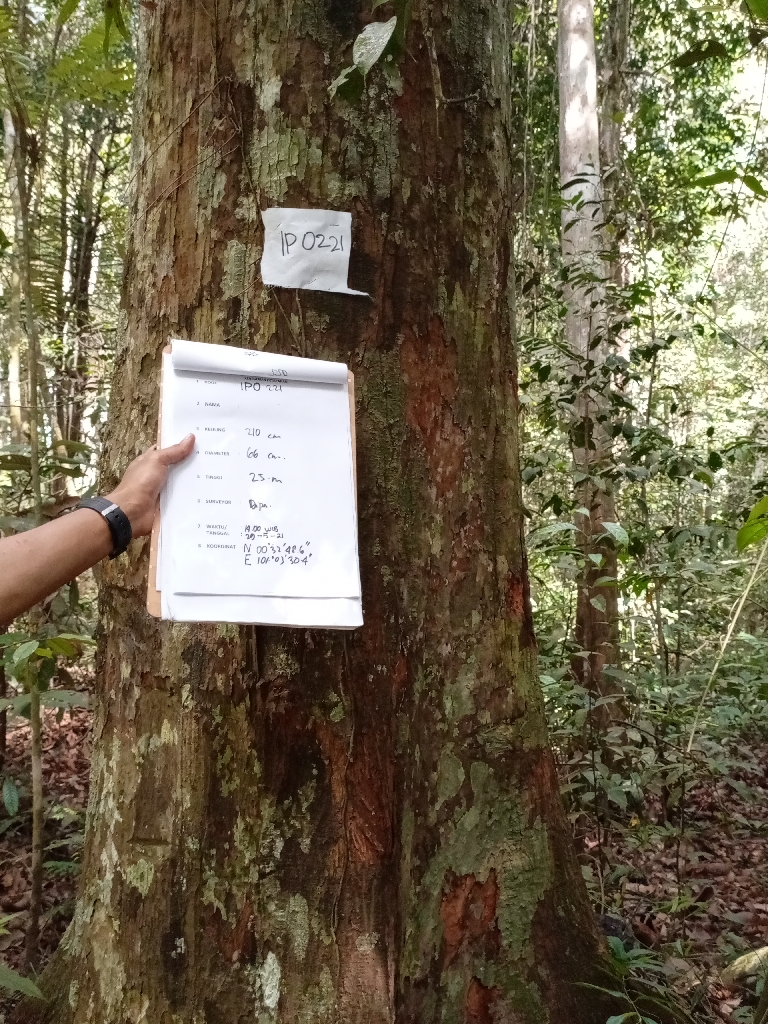 IP 0221
1 KODE
IPO 221
2 NAMA
3 KELILING 210 cm
4 DIAMETER 66 cm.
5 TINGGI 25 m
SURVEYOR
7 WAKTU/ 14.00 WIB
TANGGAL : 29-5-21
8 KOORDINAT N 00°32'48.6"
E 101°03'30.4"